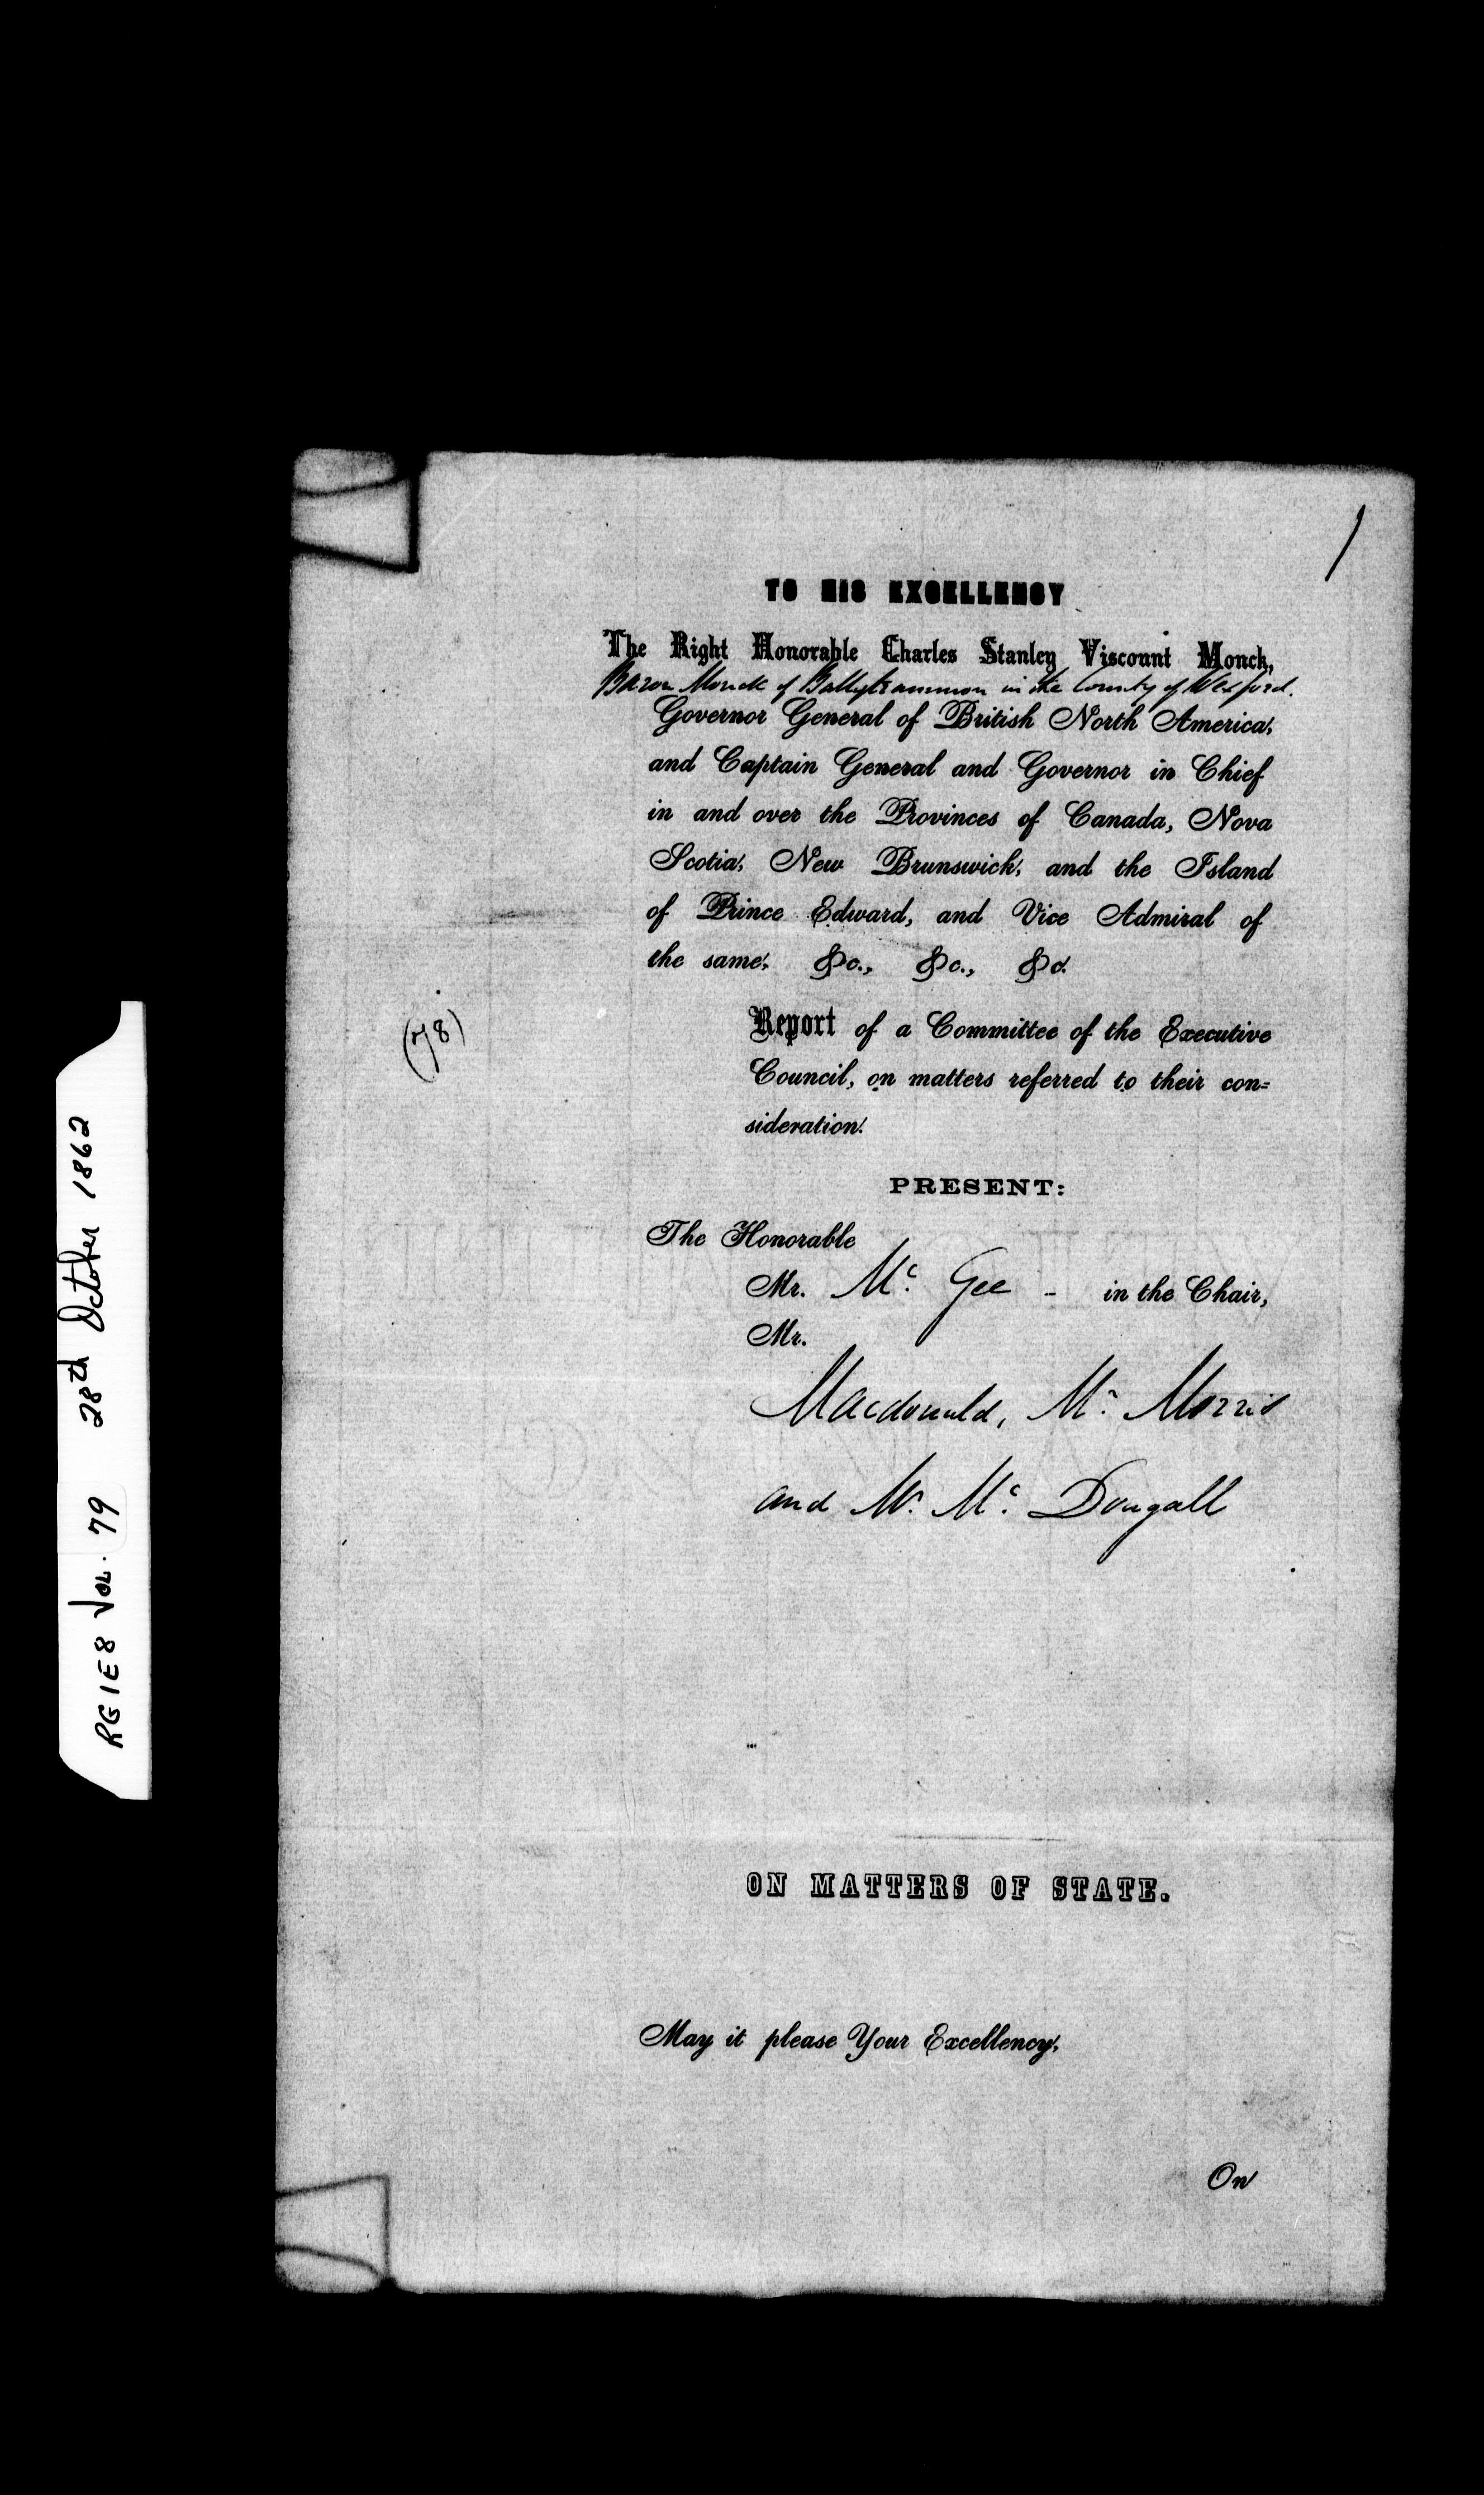 1
TO HIS EXCELLENCY
The Right Honorable Charles Stanley Viscount Monck,
Baron Monck of Ballytrammon in the County of Wexford.
Governor General of British North America,
and Captain General and Governor in Chief
in and over the Provinces of Canada, Nova
Scotia, New Brunswick, and the Island
of Prince Edward, and Vice Admiral of
the same, &c., &c., &c.
(78)
Report of a Committee of the Executive
Council, on matters referred to their con=
sideration.
PRESENT:
The Honorable
Mr. Mc. Gee - in the Chair,
Mr.
Macdonald, Mr. Morris
and Mr. Mc. Dougall
ON MATTERS OF STATE.
May it please Your Excellency,
On
RG1E8 VOL. 79 28th October 1862